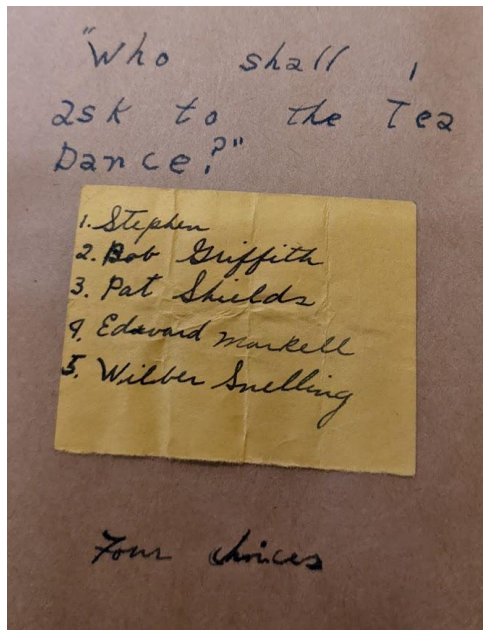 "Who shall I
ask to the Tea
Dance?"
1. Stephen
2. Bob Griffith
3. Pat Shields
4. Edward Markell
5. Wilber Snelling
Four choices